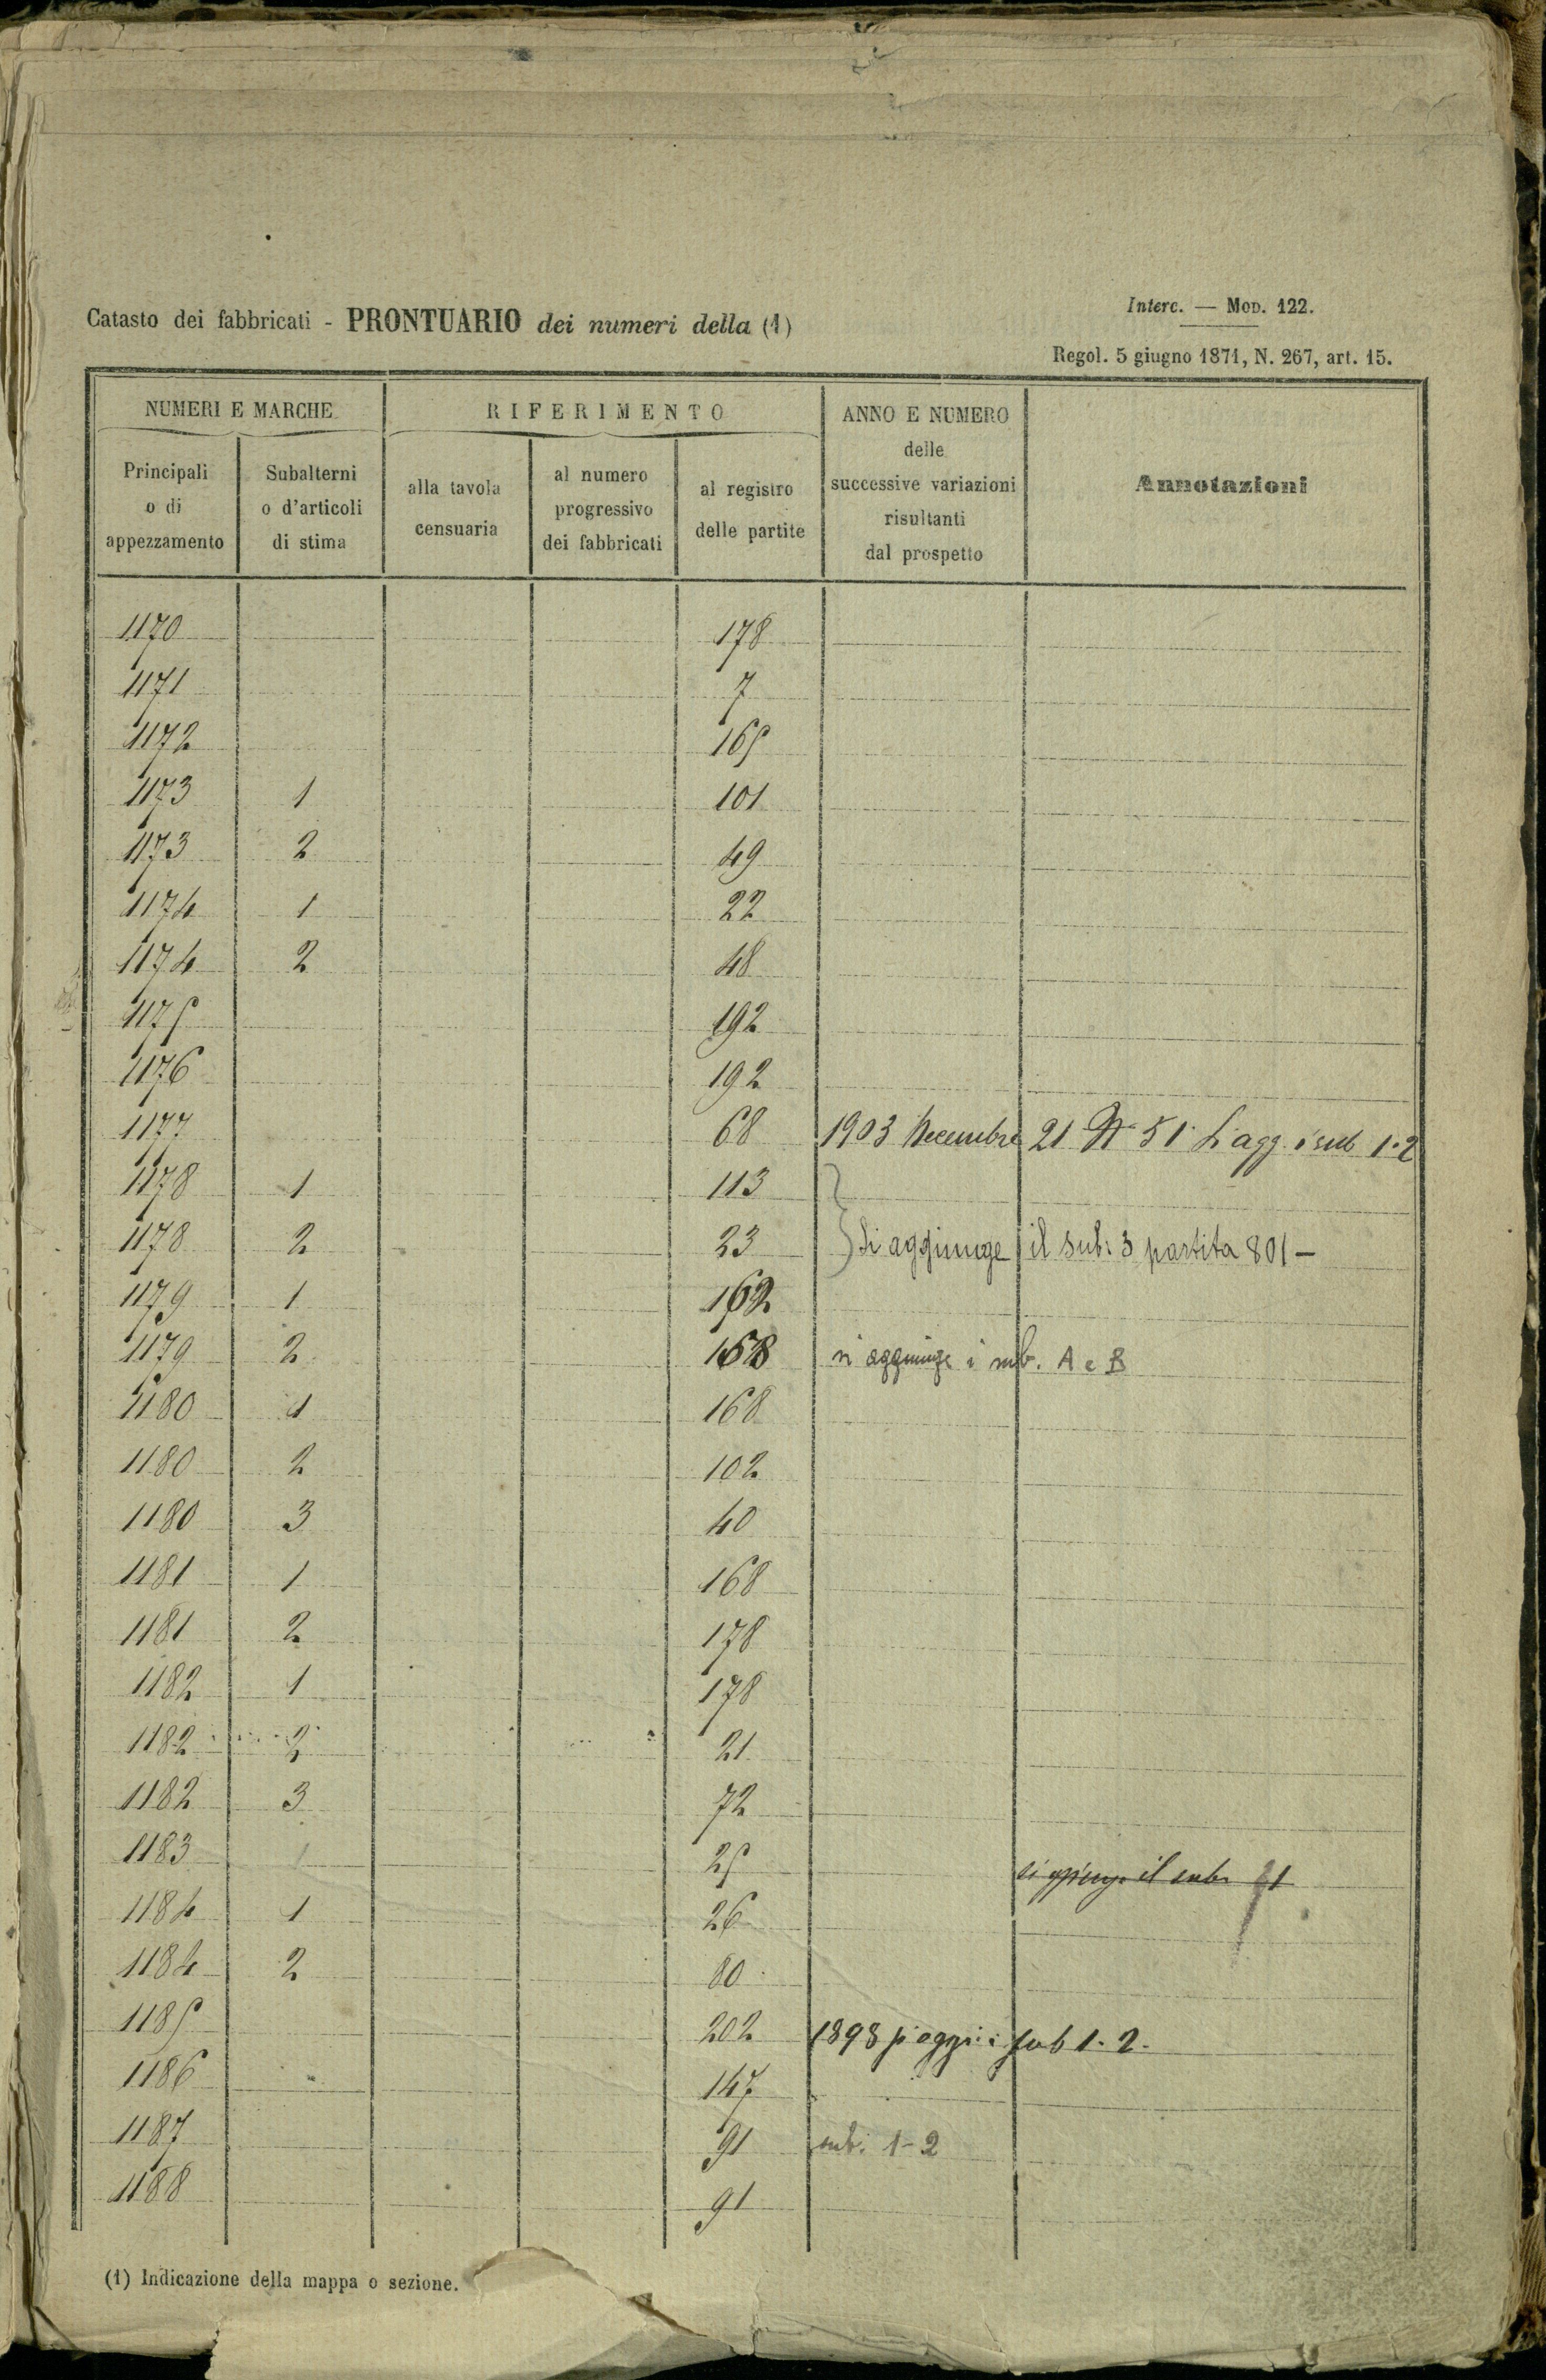 Interc. — Mod. 122.
Catasto dei fabbricati - PRONTUARIO dei numeri della (1)
Regol. 5 giugno 1871, N. 267, art. 15.
NUMERI E MARCHE
RIFERIMENTO
ANNO E NUMERO
delle
successive variazioni
risultanti
dal prospetto
Annotazioni
Principali
o di
appezzamento
Subalterni
o d'articoli
di stima
alla tavola
censuaria
al numero
progressivo
dei fabbricati
al registro
delle partite
1170 178
1171 7
1172 165
1173 1 101
1173 2 49
1174 1 22
1174 2 48
1175 192
1176 192
1177 68 1903 Decembre 21 N° 51 Si agg. i sub 1.2
1178 1 113
1178 2 23 Si aggiunge il sub: 3 partita 801 -
1179 1 162
1179 2 si aggiunge i sub. A e B
1180 1 168
1180 2 102
1180 3 40
1181 1 168
1181 2 178
1182 1 178
1182 2 21
1182 3 72
1183 25 il sub. 1
1184 1 26
1184 2 80
1185 202 1898 si aggi: i sub 1. 2.
1186 147
1187 91 sub. 1-2
1188 91
(1) Indicazione della mappa o sezione.